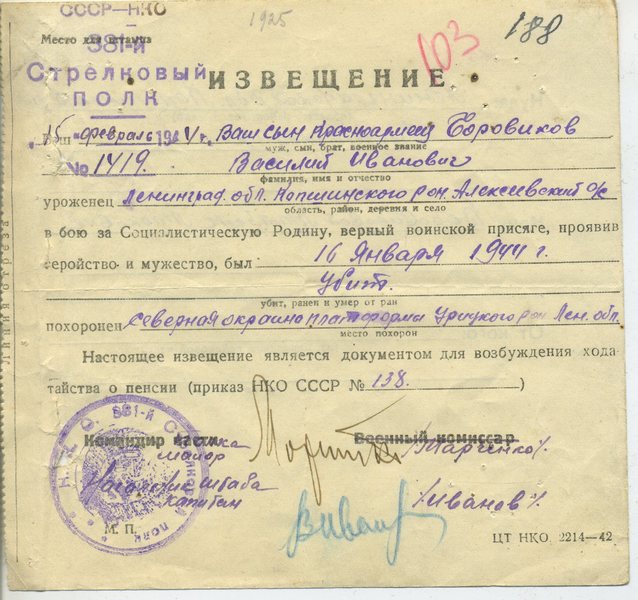 СССР—НКО
1925
103
188
Место для штампа
381-й
Стрелковый
ПОЛК
ИЗВЕЩЕНИЕ
15 февраль 194 г. Ваш сын Красноармеец Боровиков
муж, сын, брат, военное звание
№ 1419. Василий Иванович
фамилия, имя и отчество
уроженец Ленинград. обл. Капшинского рон. Алексеевский с/с
область, район, деревня и село
в бою за Социалистическую Родину, верный воинской присяге, проявив
геройство и мужество, был 16 Января 1944 г.
Убит.
убит, ранен и умер от ран
похоронен Северная окраина платформы Урицкого рон Лен. обл.
место похорон
Настоящее извещение является документом для возбуждения хода-
тайства о пенсии (приказ НКО СССР № 138. )
Командир части полка Военный комиссар
майор /Марченко/.
Начальник штаба
капитан /Иванов/.
М. П.
ЦТ НКО 2214—42
Н К О 381-й СТРЕЛКОВЫЙ ПОЛК